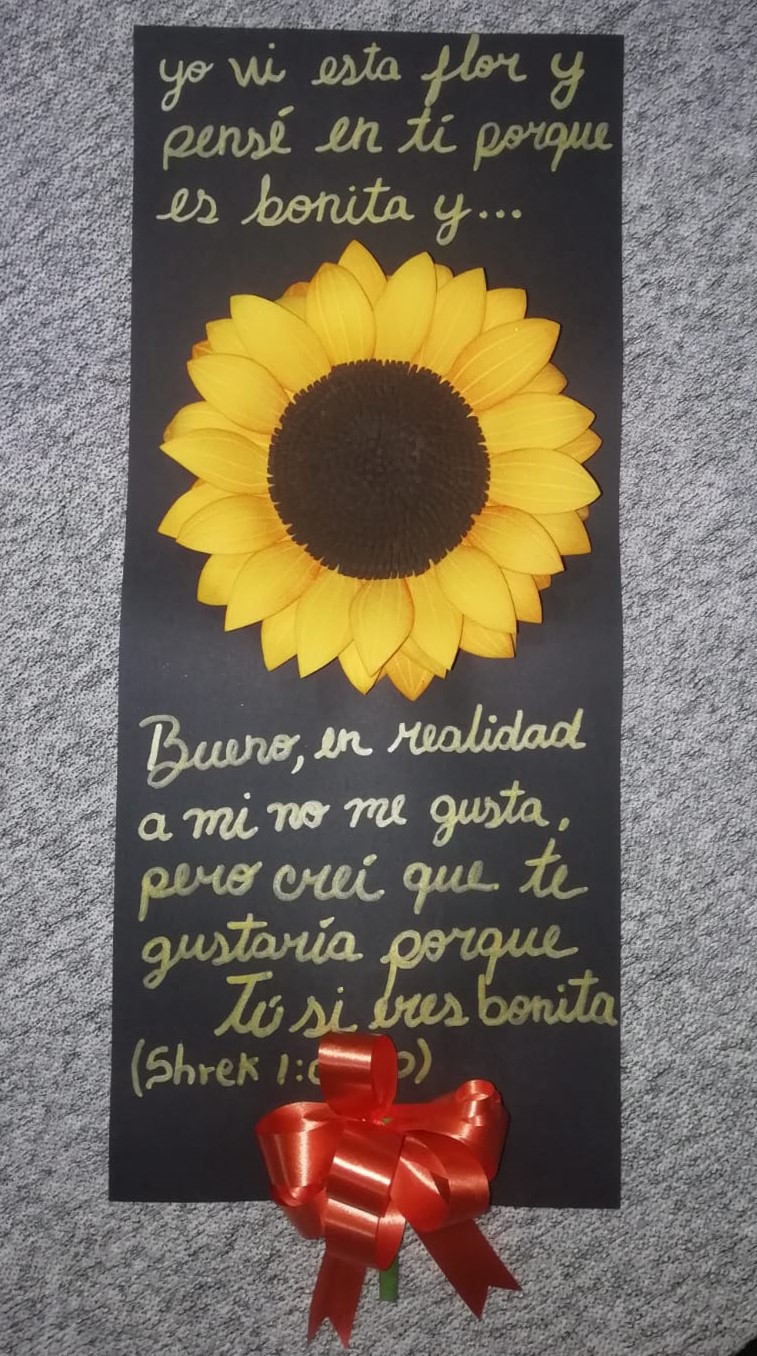 yo vi esta flor y
pensé en tí porque
es bonita y...
Bueno, en realidad
a mi no me gusta,
pero creí que te
gustaría porque
Tú si eres bonita
(Shrek